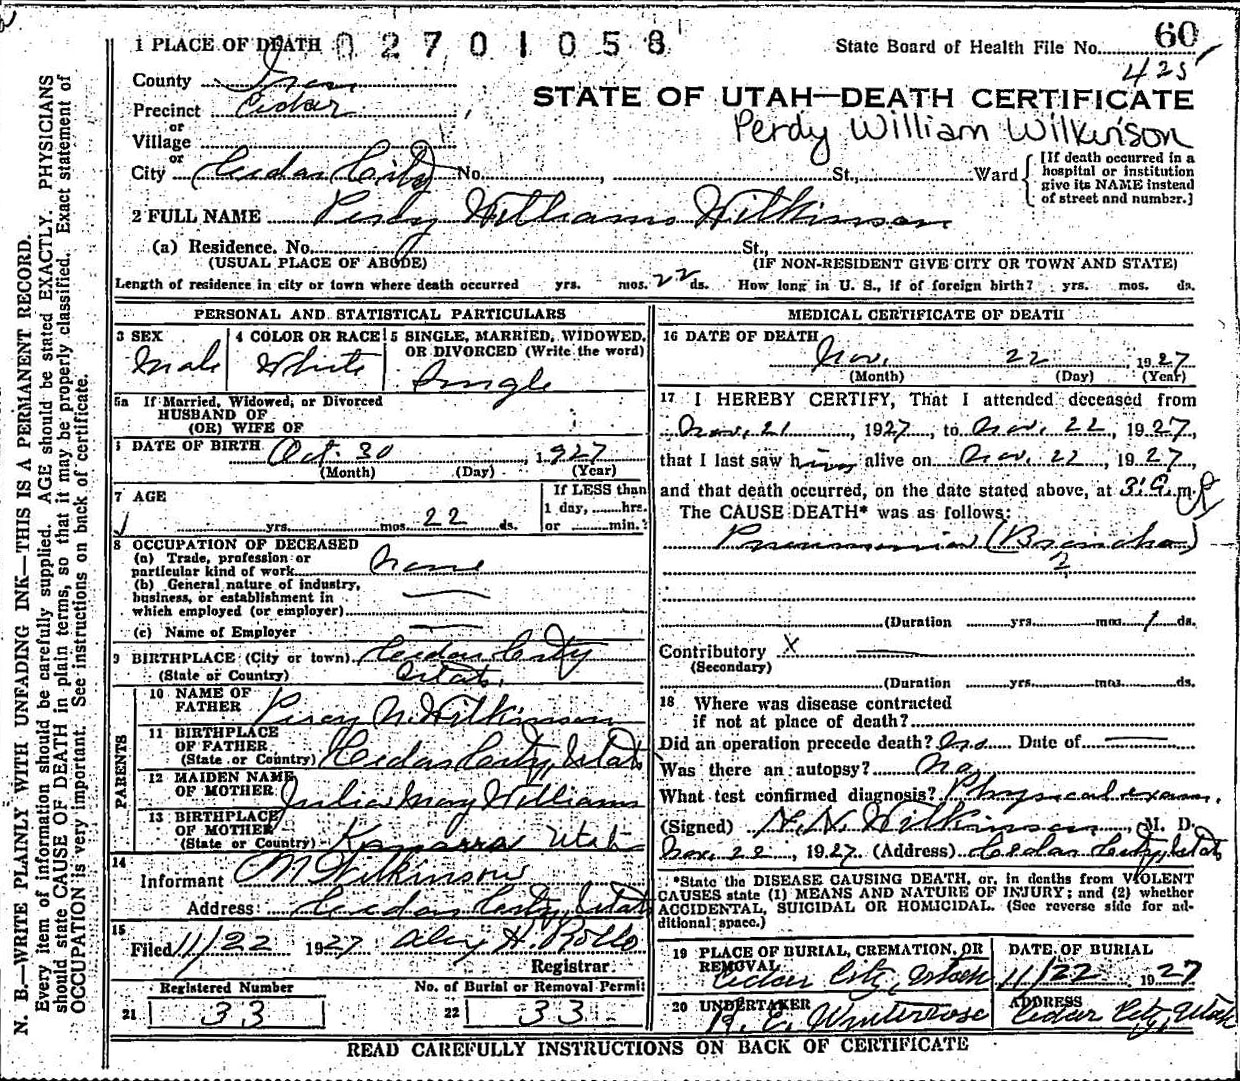 1 PLACE OF DEATH 02701058
State Board of Health File No. 60
425
County Iron
Precinct Cedar
or
Village
or
City Cedar City No. St., Ward
STATE OF UTAH—DEATH CERTIFICATE
Perdy William Wilkinson
[If death occurred in a
hospital or institution
give its NAME instead
of street and number.]
2 FULL NAME Perdy Williams Wilkinson
(a) Residence. No. St.,
(USUAL PLACE OF ABODE) (IF NON-RESIDENT GIVE CITY OR TOWN AND STATE)
Length of residence in city or town where death occurred yrs. mos. 22 ds. How long in U. S., if of foreign birth? yrs. mos. ds.
PERSONAL AND STATISTICAL PARTICULARS
3 SEX 4 COLOR OR RACE 5 SINGLE, MARRIED, WIDOWED,
OR DIVORCED (Write the word)
Male White Single
5a If Married, Widowed, or Divorced
HUSBAND OF
(OR) WIFE OF
DATE OF BIRTH Oct. 30, 1927
(Month) (Day) (Year)
7 AGE If LESS than
1 day, hrs.
yrs. mos. 22 ds. or min.?
8 OCCUPATION OF DECEASED
(a) Trade, profession or
particular kind of work None
(b) General nature of industry,
business, or establishment in
which employed (or employer)
(c) Name of Employer
9 BIRTHPLACE (City or town) Cedar City
(State or Country) Utah.
PARENTS
10 NAME OF
FATHER Percy N. Wilkinson
11 BIRTHPLACE
OF FATHER
(State or Country) Cedar City, Utah
12 MAIDEN NAME
OF MOTHER Julia May Williams
13 BIRTHPLACE
OF MOTHER
(State or Country) Kanarra Utah
14
Informant M Wilkinson
Address: Cedar City, Utah
15
Filed 11/22 1927 Alex H. Rollo
Registrar.
Registered Number No. of Burial or Removal Permit
21 33 22 33
MEDICAL CERTIFICATE OF DEATH
16 DATE OF DEATH
Nov. 22, 1927
(Month) (Day) (Year)
17 I HEREBY CERTIFY, That I attended deceased from
Nov. 21, 1927, to Nov. 22, 1927,
that I last saw him alive on Nov. 22, 1927,
and that death occurred, on the date stated above, at m.
The CAUSE DEATH* was as follows:
Pneumonia (Broncho)
2
(Duration yrs. mos. 1 ds.
Contributory X
(Secondary)
(Duration yrs. mos. ds.
18 Where was disease contracted
if not at place of death?
Did an operation precede death? No Date of
Was there an autopsy? No
What test confirmed diagnosis? Physical exam.
(Signed) N. N. Wilkinson, M. D.
Nov. 22, 1927 (Address) Cedar City, Utah
*State the DISEASE CAUSING DEATH, or, in deaths from VIOLENT
CAUSES state (1) MEANS AND NATURE OF INJURY; and (2) whether
ACCIDENTAL, SUICIDAL OR HOMICIDAL. (See reverse side for ad-
ditional space.)
19 PLACE OF BURIAL, CREMATION, OR
REMOVAL DATE OF BURIAL
Cedar City, Utah 11/22 1927
20 UNDERTAKER ADDRESS
R. E. Whiterose Cedar City, Utah
READ CAREFULLY INSTRUCTIONS ON BACK OF CERTIFICATE
N. B.—WRITE PLAINLY WITH UNFADING INK—THIS IS A PERMANENT RECORD.
Every item of information should be carefully supplied. AGE should be stated EXACTLY. PHYSICIANS
should state CAUSE OF DEATH in plain terms, so that it may be properly classified. Exact statement of
OCCUPATION is very important. See instructions on back of certificate.